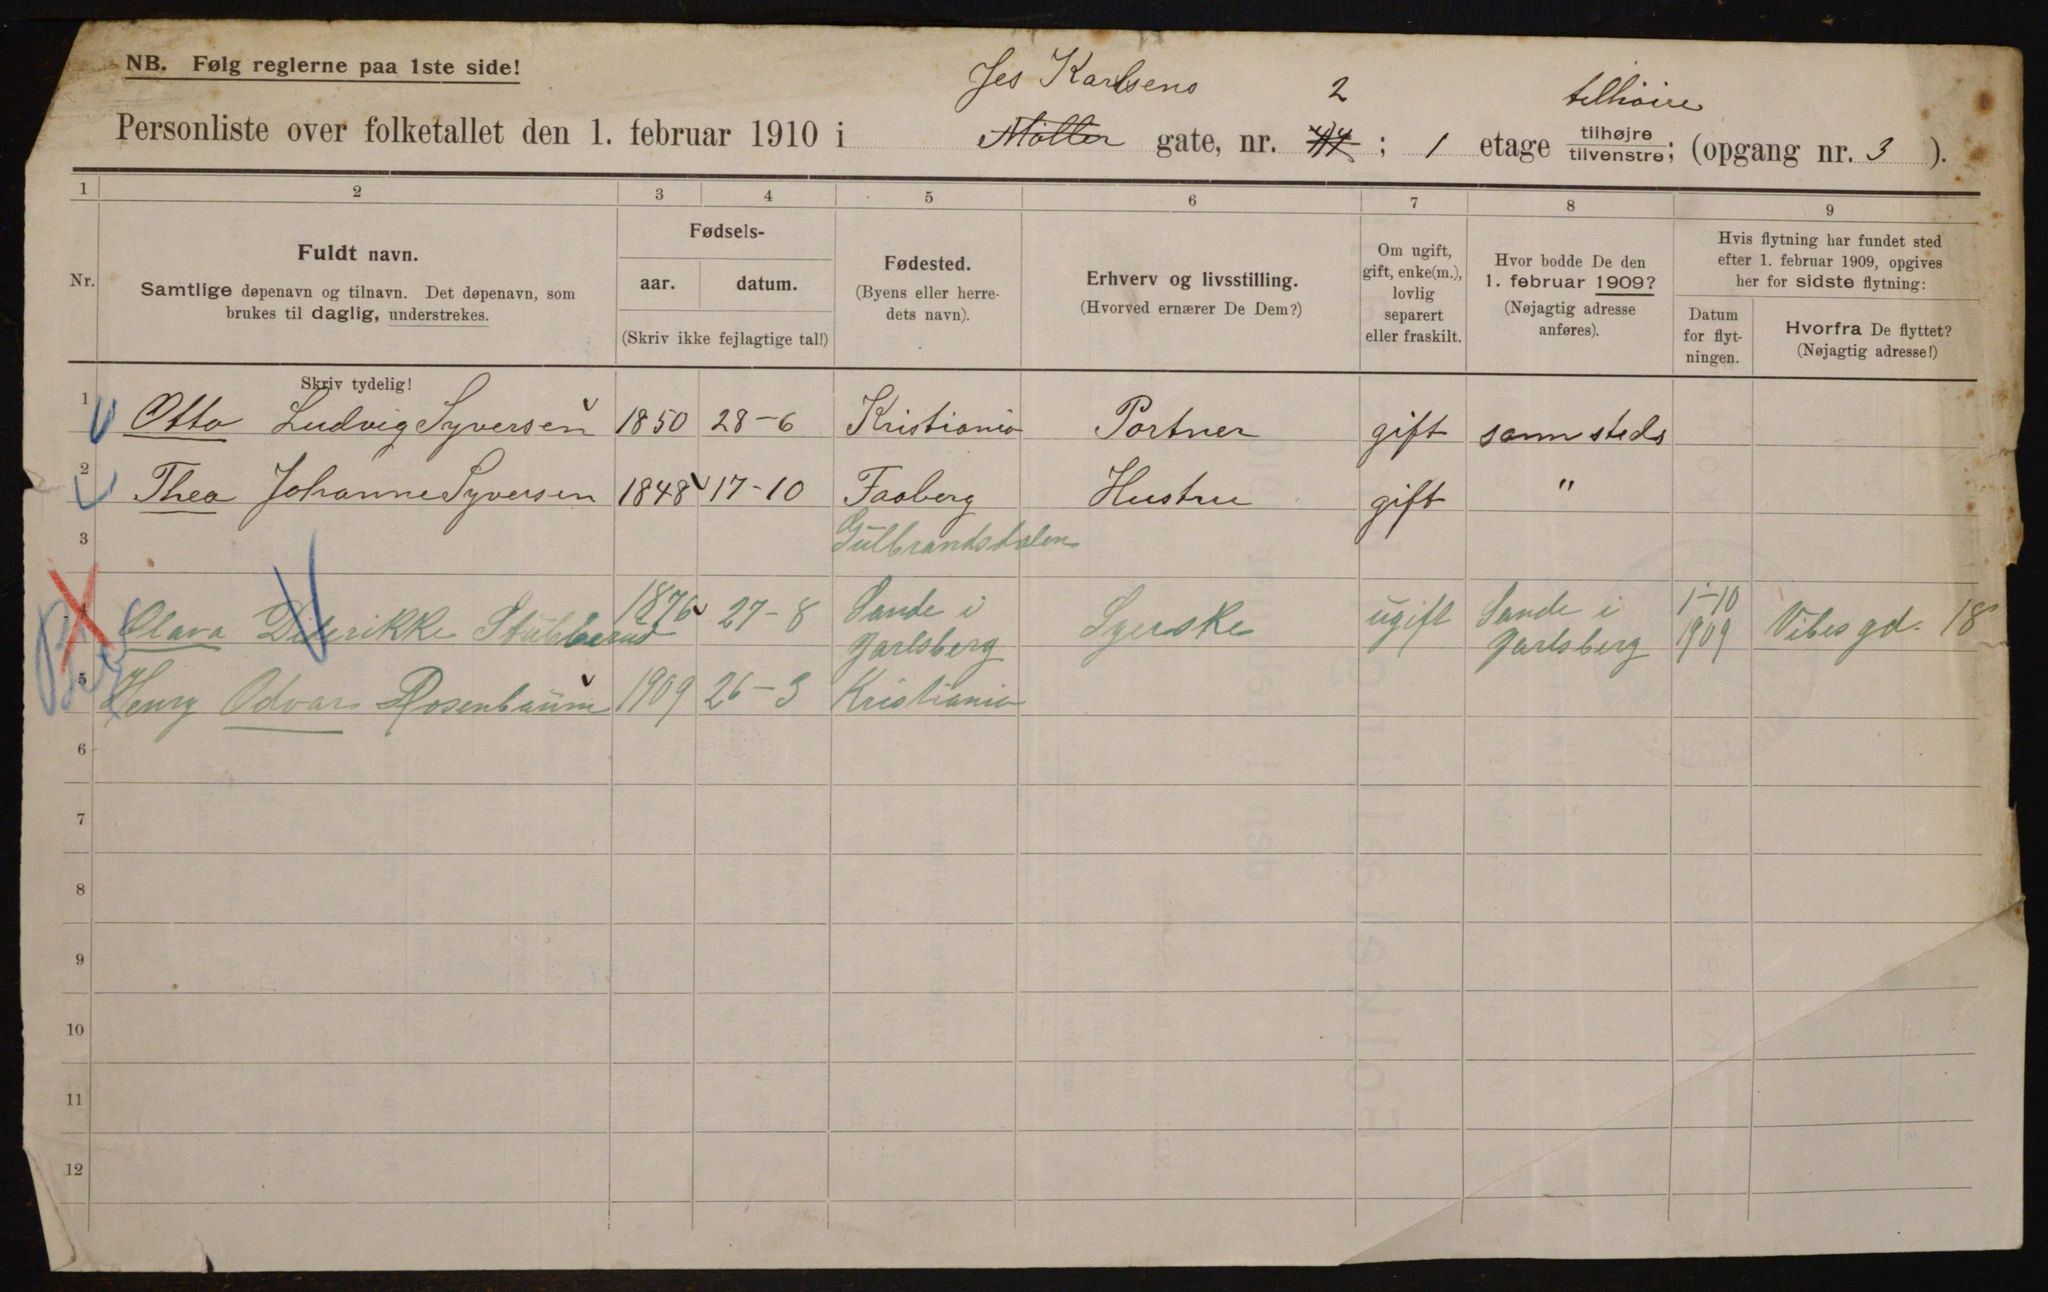 NB. Følg reglerne paa 1ste side!
Jes Karlsens 2 tilhøire
Personliste over folketallet den 1. februar 1910 i Møller gate, nr. ; 1 etage tilhøjre/tilvenstre; (opgang nr. 3 ).
1 2 3 4 5 6 7 8 9
Nr.
Fuldt navn.
Samtlige døpenavn og tilnavn. Det døpenavn, som
brukes til daglig, understrekes.
Fødsels-
aar. datum.
(Skriv ikke fejlagtige tal!)
Fødested.
(Byens eller herre-
dets navn).
Erhverv og livsstilling.
(Hvorved ernærer De Dem?)
Om ugift,
gift, enke(m.),
lovlig
separert
eller fraskilt.
Hvor bodde De den
1. februar 1909?
(Nøjagtig adresse
anføres).
Hvis flytning har fundet sted
efter 1. februar 1909, opgives
her for sidste flytning:
Datum
for flyt-
ningen.
Hvorfra De flyttet?
(Nøjagtig adresse!)
Skriv tydelig!
1 Otto Ludvig Syversen 1850 28-6 Kristiania Portner gift samsteds
2 Thea Johanne Syversen 1848 17-10 Faaberg Hustru gift "
3 Gulbrandsdalen
4 Olava Diderikke Stubberud 1876 27-8 Sande i Jarlsberg Syerske ugift Sande i Jarlsberg 1-10 1909 Vibes gd. 18
5 Henry Odvar Rosenbaum 1909 26-3 Kristiania
6
7
8
9
10
11
12